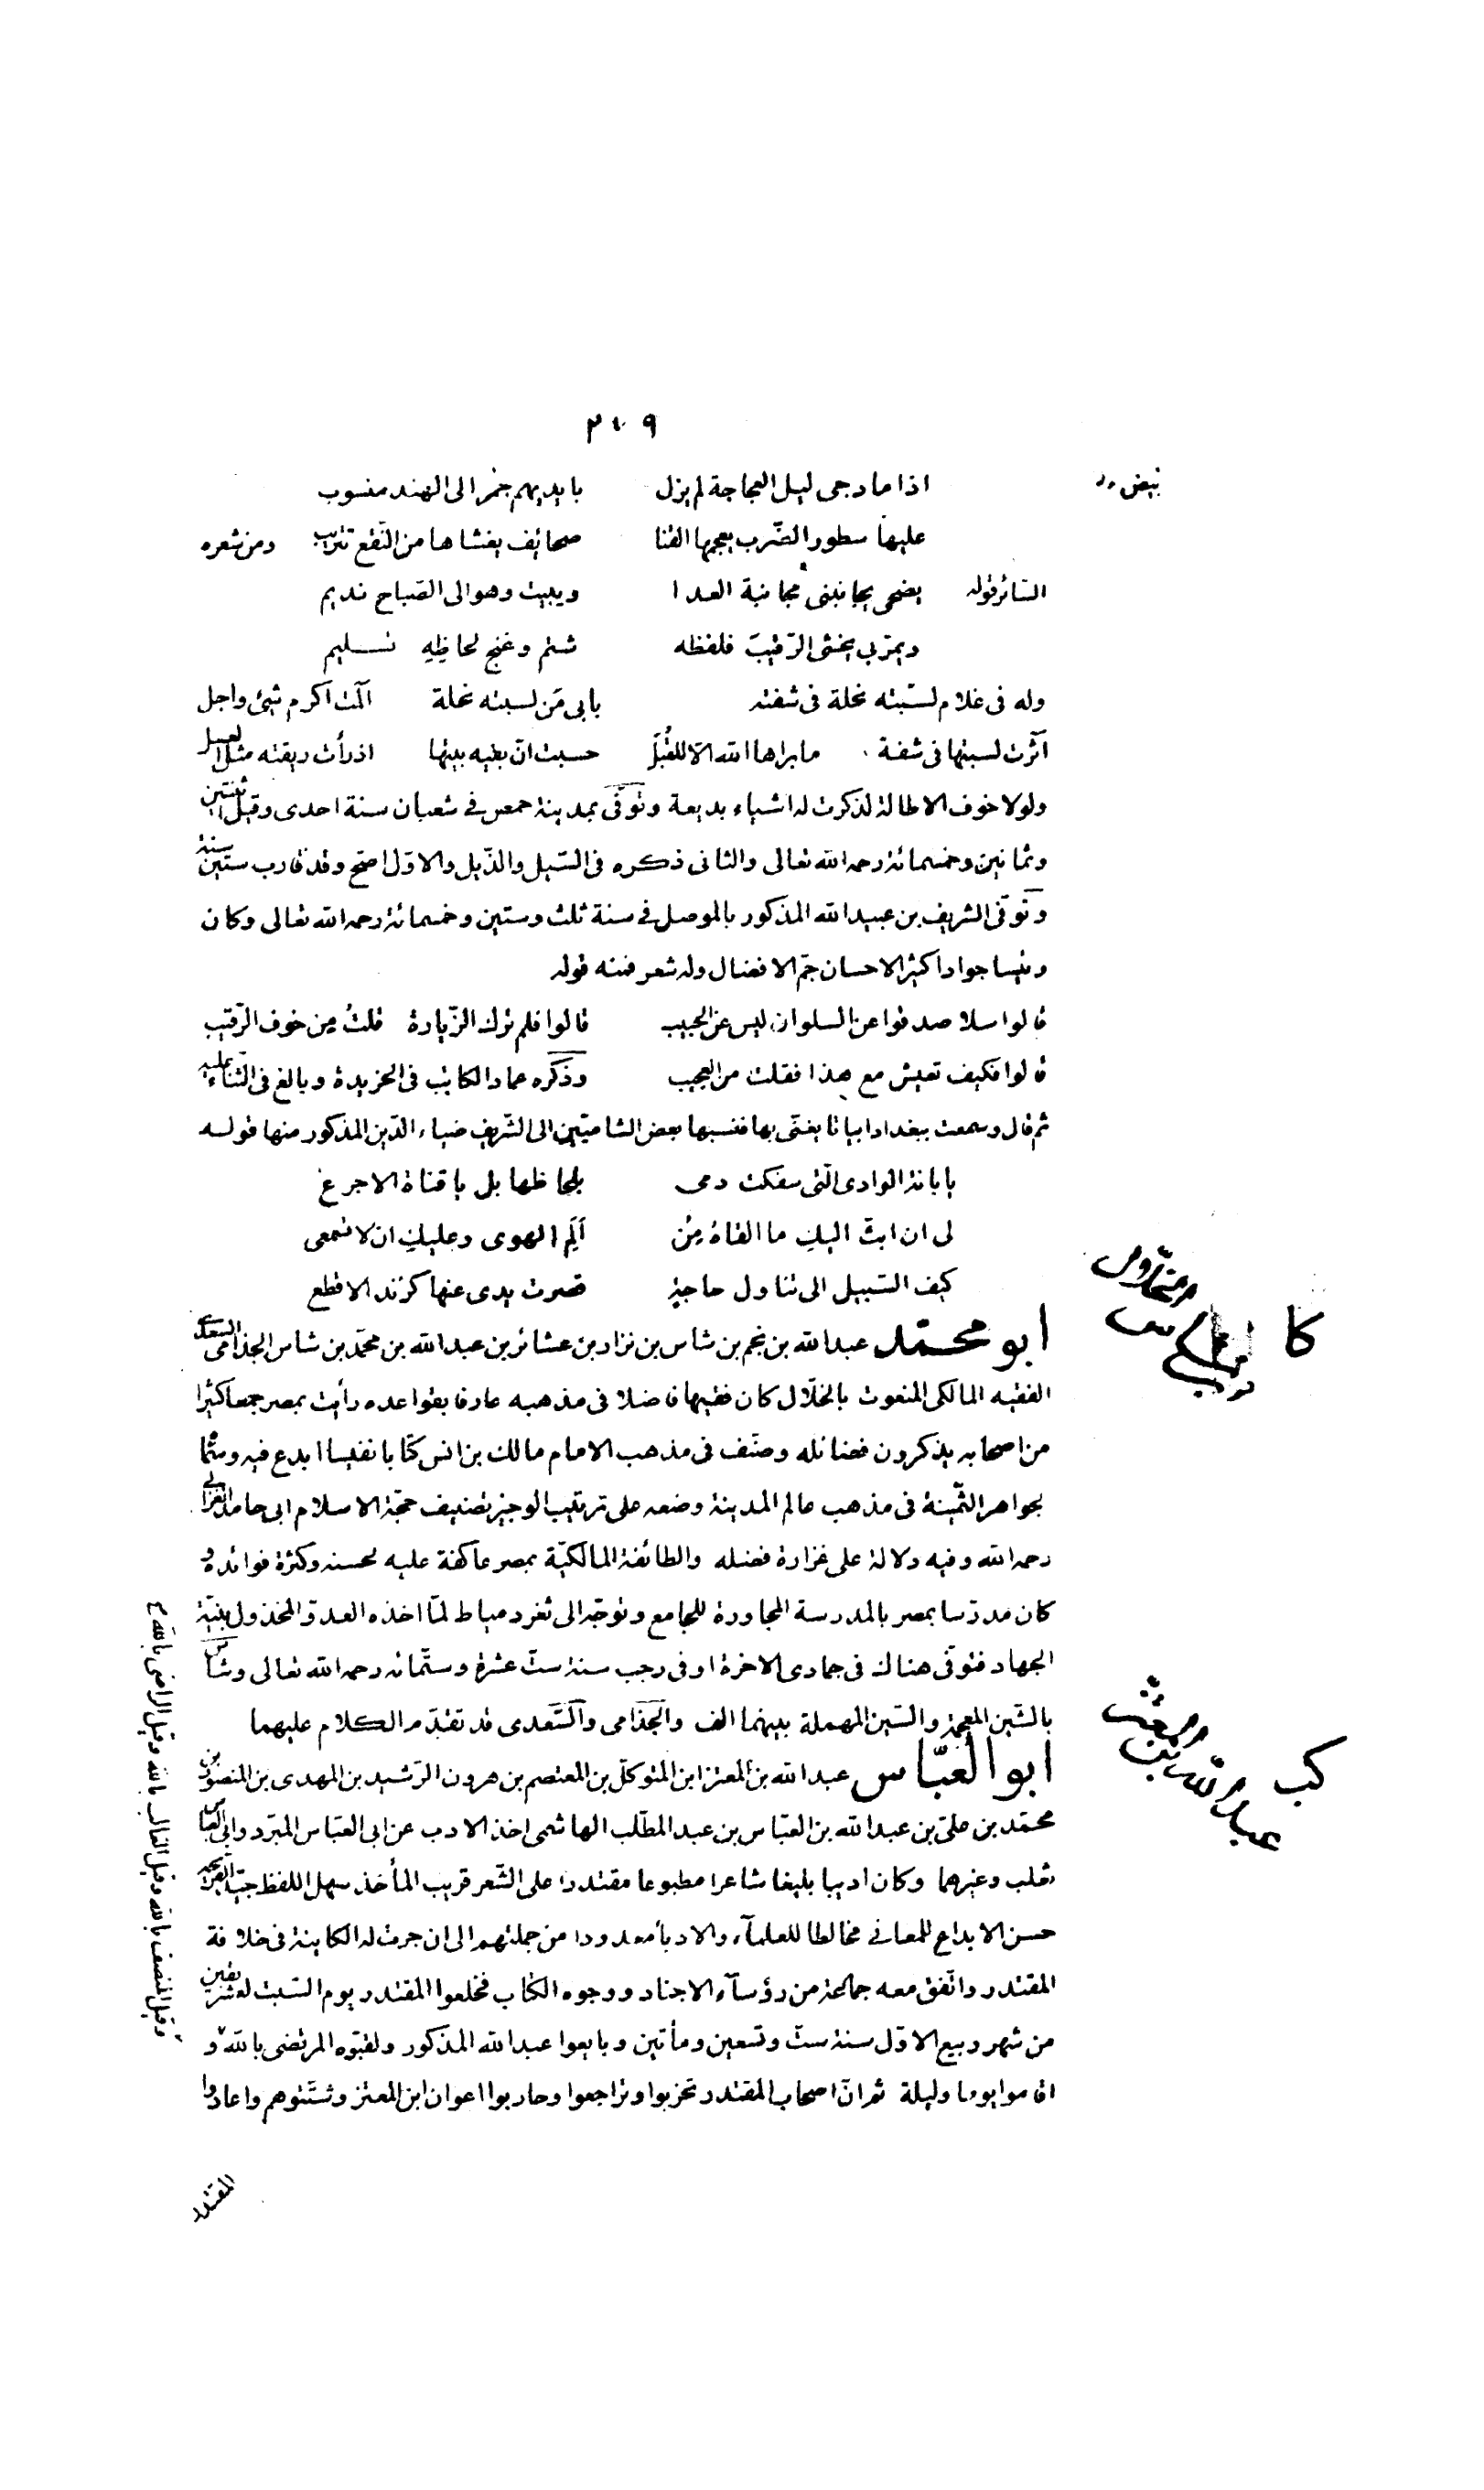 ٢٠٩
اذا ما دجى ليل العجاجة لم يزل بايديهم جمر الى الهند منسوب
عليها سطور الضّرب يعجمها القنا صحائف يغشاها من النّقع تتريب ومن شعره
السّائر قوله يضحى يجانبنى مجانبة العدا ويبيت وهو الى الصّباح نديم
ويمرّ بى يخشى الرّقيبَ فلفظه شتم وغنج لحاظِهِ تسليم
وله فى غلام لسبته نحلة فى شفته بابى مَن لسبته نحلة آلمت اكرم شئ واجل
آثرت لسبتها فى شفة ما براها الله الّا للقُبَل حسبت انّ بفيه بيتها اذ رأت ريقته مثل العسل
ولولا خوف الاطالة لذكرت له اشياء بديعة وتوفّى بمدينة حمص فى شعبان سنة احدى وقيل ثنتين
وثمانين وخمسمائة رحمه الله تعالى والثانى ذكره فى السّيل والذّيل والاوّل اصّح وقد قارب ستّين سنة
وتوفّى الشريف بن عبيد الله المذكور بالموصل فى سنة ثلث وستين وخمسمائة رحمه الله تعالى وكان
رئيسا جوادا كثير الاحسان جمّ الافضال وله شعر فمنه قوله
قالوا سلا صدقوا عن السلوان ليس عن الحبيب قالوا فلم ترك الزّيارة قلتُ مِن خوف الرّقيب
قالوا فكيف تعيش مع هذا فقلت من العجيب وذكره عماد الكاتب فى الخريدة وبالغ فى الثناء عليه
ثم قال وسمعت ببغداد ابياتا يغنّى بها فنسبها بعض الشاميّين الى الشّريف ضياء الدّين المذكور منها قوله
يا بانة الوادى الّتى سفكت دمى بلحاظها بل يا قناة الاجرع
لى ان ابثّ اليكِ ما القاهُ مِن اَلَمِ الهوى وعليكِ ان لا تسمعى
كيف السّبيل الى تناول حاجةٍ قصرت يدى عنها كزند الاقطع
ابو محمّد عبد الله بن نجم بن شاس بن نزار بن عشائر بن عبد الله بن محمّد بن شاس الجذامى السعدى
الفقيه المالكى المنعوت بالخلّال كان فقيها فاضلا فى مذهبه عارفا بقواعده رأيت بمصر جمعا كثيرا
من اصحابه يذكرون فضائله وصنّف فى مذهب الامام مالك بن انس كتابا نفيسا ابدع فيه وسمّا
بجواهر الثّمينة فى مذهب عالم المدينة وضعه على ترتيب الوجيز تصنيف حجّة الاسلام ابى حامد الغزالى
رحمه الله وفيه دلالة على غزارة فضله والطائفة المالكيّة بمصر عاكفة عليه لحسنه وكثرة فوائده و
كان مدرّسا بمصر بالمدرسة المجاورة للجامع وتوجّه الى ثغر دمياط لمّا اخذه العدوّ المخذول بنيّة
الجهاد فتوفّى هناك فى جمادى الاخرة او فى رجب سنة ستّ عشرة وستّمائه رحمه الله تعالى وشاس
بالشّين المعجمة والسّين المهملة بينهما الف والجذامى والسّعدى قد تقدّم الكلام عليهما
ابو العبّاس عبد الله بن المعتز ابن المتوكّل بن المعتصم بن هرون الرّشيد بن المهدى بن المنصور بن
محمّد بن علىّ بن عبد الله بن العبّاس بن عبد المطّلب الهاشمى اخذ الادب عن ابى العبّاس المبرّد وابى العباس
ثعلب وغيرهما وكان اديبا بليغا شاعرا مطبوعا مقتدرا على الشّعر قريب المأخذ سهل اللفظ جيّد القريحة
حسن الابداع للمعانى مخالطا للعلمآء والادبآء معدودا من جملتهم الى ان جرت له الكاينة فى خلافة
المقتدر واتّفق معه جماعة من رؤسآء الاجناد ووجوه الكتّاب فخلعوا المقتدر يوم السّبت لعشر بقين
من شهر ربيع الاوّل سنة ستّ وتسعين ومأتين وبايعوا عبد الله المذكور ولقّبوه المرتضى بالله و
اقاموا يوما وليلة ثم انّ اصحاب المقتدر تحزبوا وتراجعوا وحاربوا اعوان ابن المعتز وشتّتوهم واعادوا
المقتدر
وقيل المنصف بالله وقيل الغالب بالله وقيل الراضى بالله
كا
كب
عبد الله بن المعتز